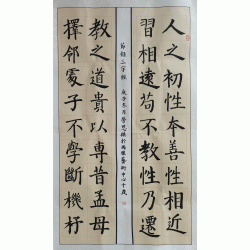 人之初性本善性相近
習相遠苟不教性乃遷
教之道貴以專昔孟母
擇鄰處子不學斷機杼
節錄三字經